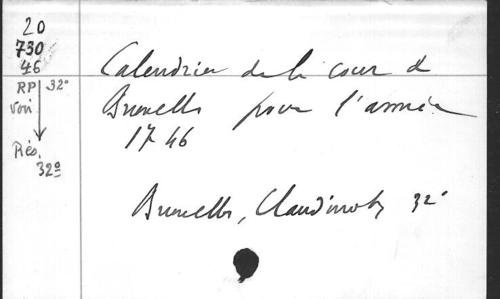 20
730
46
RP 32°
voir
Rés.
32°
Calendrier de la cour de
Bruxelles pour l'année
1746
Bruxelles, Claudinot, 32°